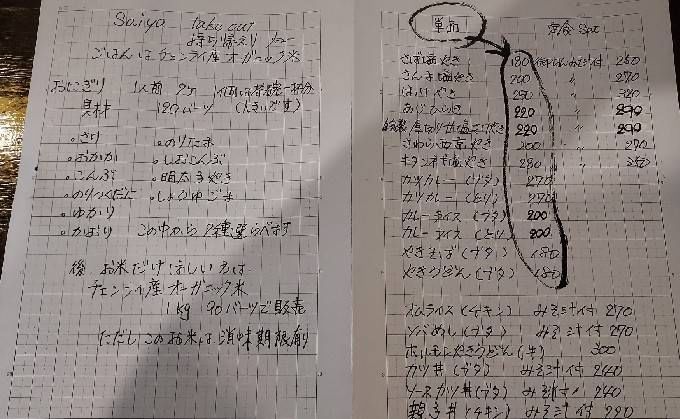 Saiya take out
持ち帰えりメニュー
ごはんはチェンライ産オーガニック米
おにぎり 1人前 2ケ
具材 120バーツ (大きいです)
・さけ ・のりたま
・おかか ・しおこんぶ
・こんぶ ・明太子
・のりつくだに ・しょうゆごま
・ゆかり
・かおり この中から2種選らべます
後 お米だけほしい方は
チェンライ産オーガニック米
1kg 90バーツで販売
ただしこのお米は消味期限有り
単品 定食 Set
さば塩やき 180 ごはんみそ汁付 250
さんま塩やき 200 〃 270
ほっけやき 250 〃 320
あじひらき 220 〃 290
厚切り 220 〃 290
さわら西京やき 200 〃 270
牛タン 280 〃 350
カツカレー (ブタ) 270
カツカレー (とり) 270
カレーライス (ブタ) 200
カレーライス (とり) 200
やきそば (ブタ) 180
やきうどん (ブタ) 180
オムライス (チキン) みそ汁付 270
ソバめし (ブタ) みそ汁付 270
ホルモンやきうどん (牛) 300
カツ丼 (ブタ) みそ汁付 240
ソースカツ丼 (ブタ) みそ汁付 240
親子丼 (チキン) みそ汁付 220